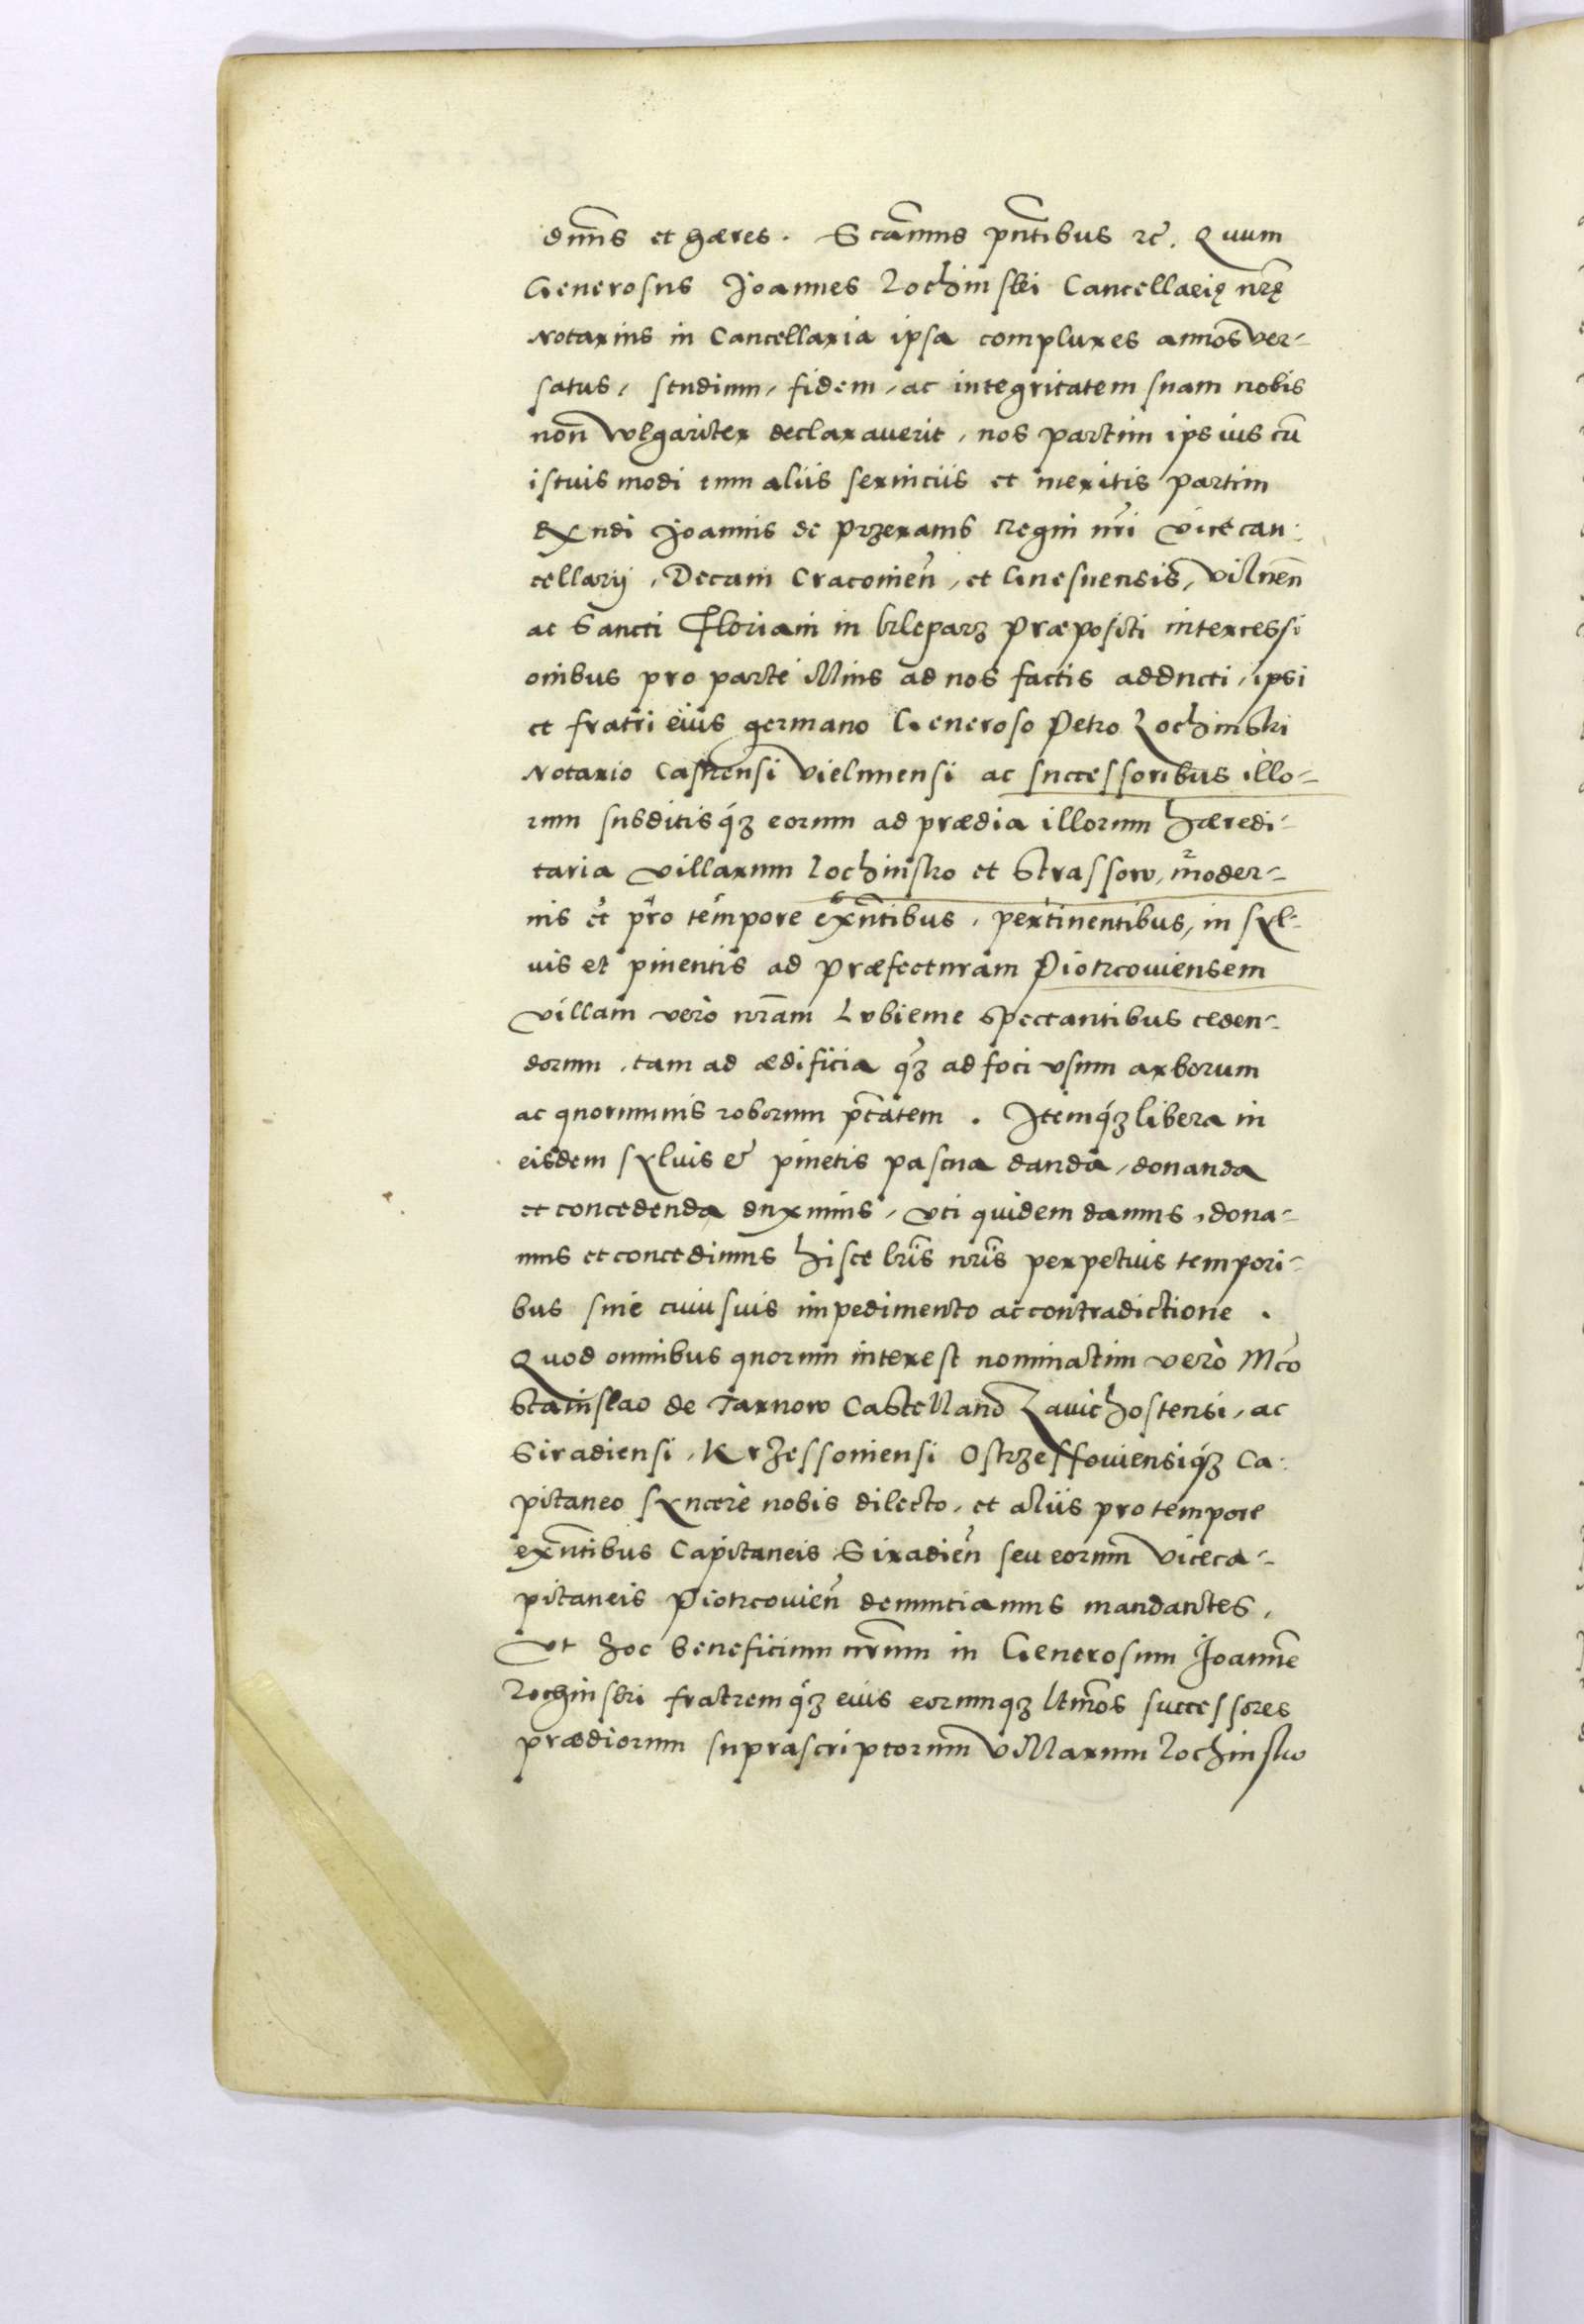 dnns et hæres. S canms pntibus rc. Quum
Generosus Joannes Lochinski Cancellarię nrę
Notarius in Cancellaria ipsa complures annos ver-
satus, studium, fidem, ac integritatem suam nobis
non vulgariter declaraverit, nos partim ipsius cu
istuismodi cum aliis serviciis et meritis partim
Rndi Joannis de przerams Regni nri vicecan:
cellarij, Decani Cracovien, et Gnesnensis, vilnen
ac Sancti Floriani in kleparz præpositi intercessi
onibus pro parte illius ad nos factis adducti, ipsi
et fratri eius germano Generoso Petro Lochinski
Notario Castrensi vielunensi ac successoribus illo-
rum subditisq3 eorum ad prædia illorum hæredi-
taria villarum Lochinsko et Strassow, moder-
nis et pro tempore exntibus, pertinentibus, in syl-
vis et pinentis ad præfecturam Piotrcoviensem
villam verò nram Lubieme spectantibus ceden-
dorum, tam ad ædificia q3 ad foci usum arborum
ac quorumvis roborum ptatem. Itemq3 libera in
eisdem sylvis & pinetis pascua danda, donanda
et concedenda duximus, uti quidem damus, dona-
mus et concedimus hisce lris nris perpetuis tempori-
bus sine cuiusvis impedimento ac contradictione.
Quod omnibus quorum interest nominatim verò Mco
Stanislao de Tarnow Castellano Zavichostensi, ac
Siradiensi, Krzessoviensi Ostrzessoviensiq3 Ca:
pitaneo syncerè nobis dilecto, et aliis pro tempore
exntibus Capitaneis Siradien seu eorum viceca-
pitaneis Piotrcovien denunciamus mandantes,
Ut hoc beneficium nrum in Generosum Joanne
Lochinski fratremq3 eius eorumq3 ltimos successores
prædiorum suprascriptorum villarum Lochinsko